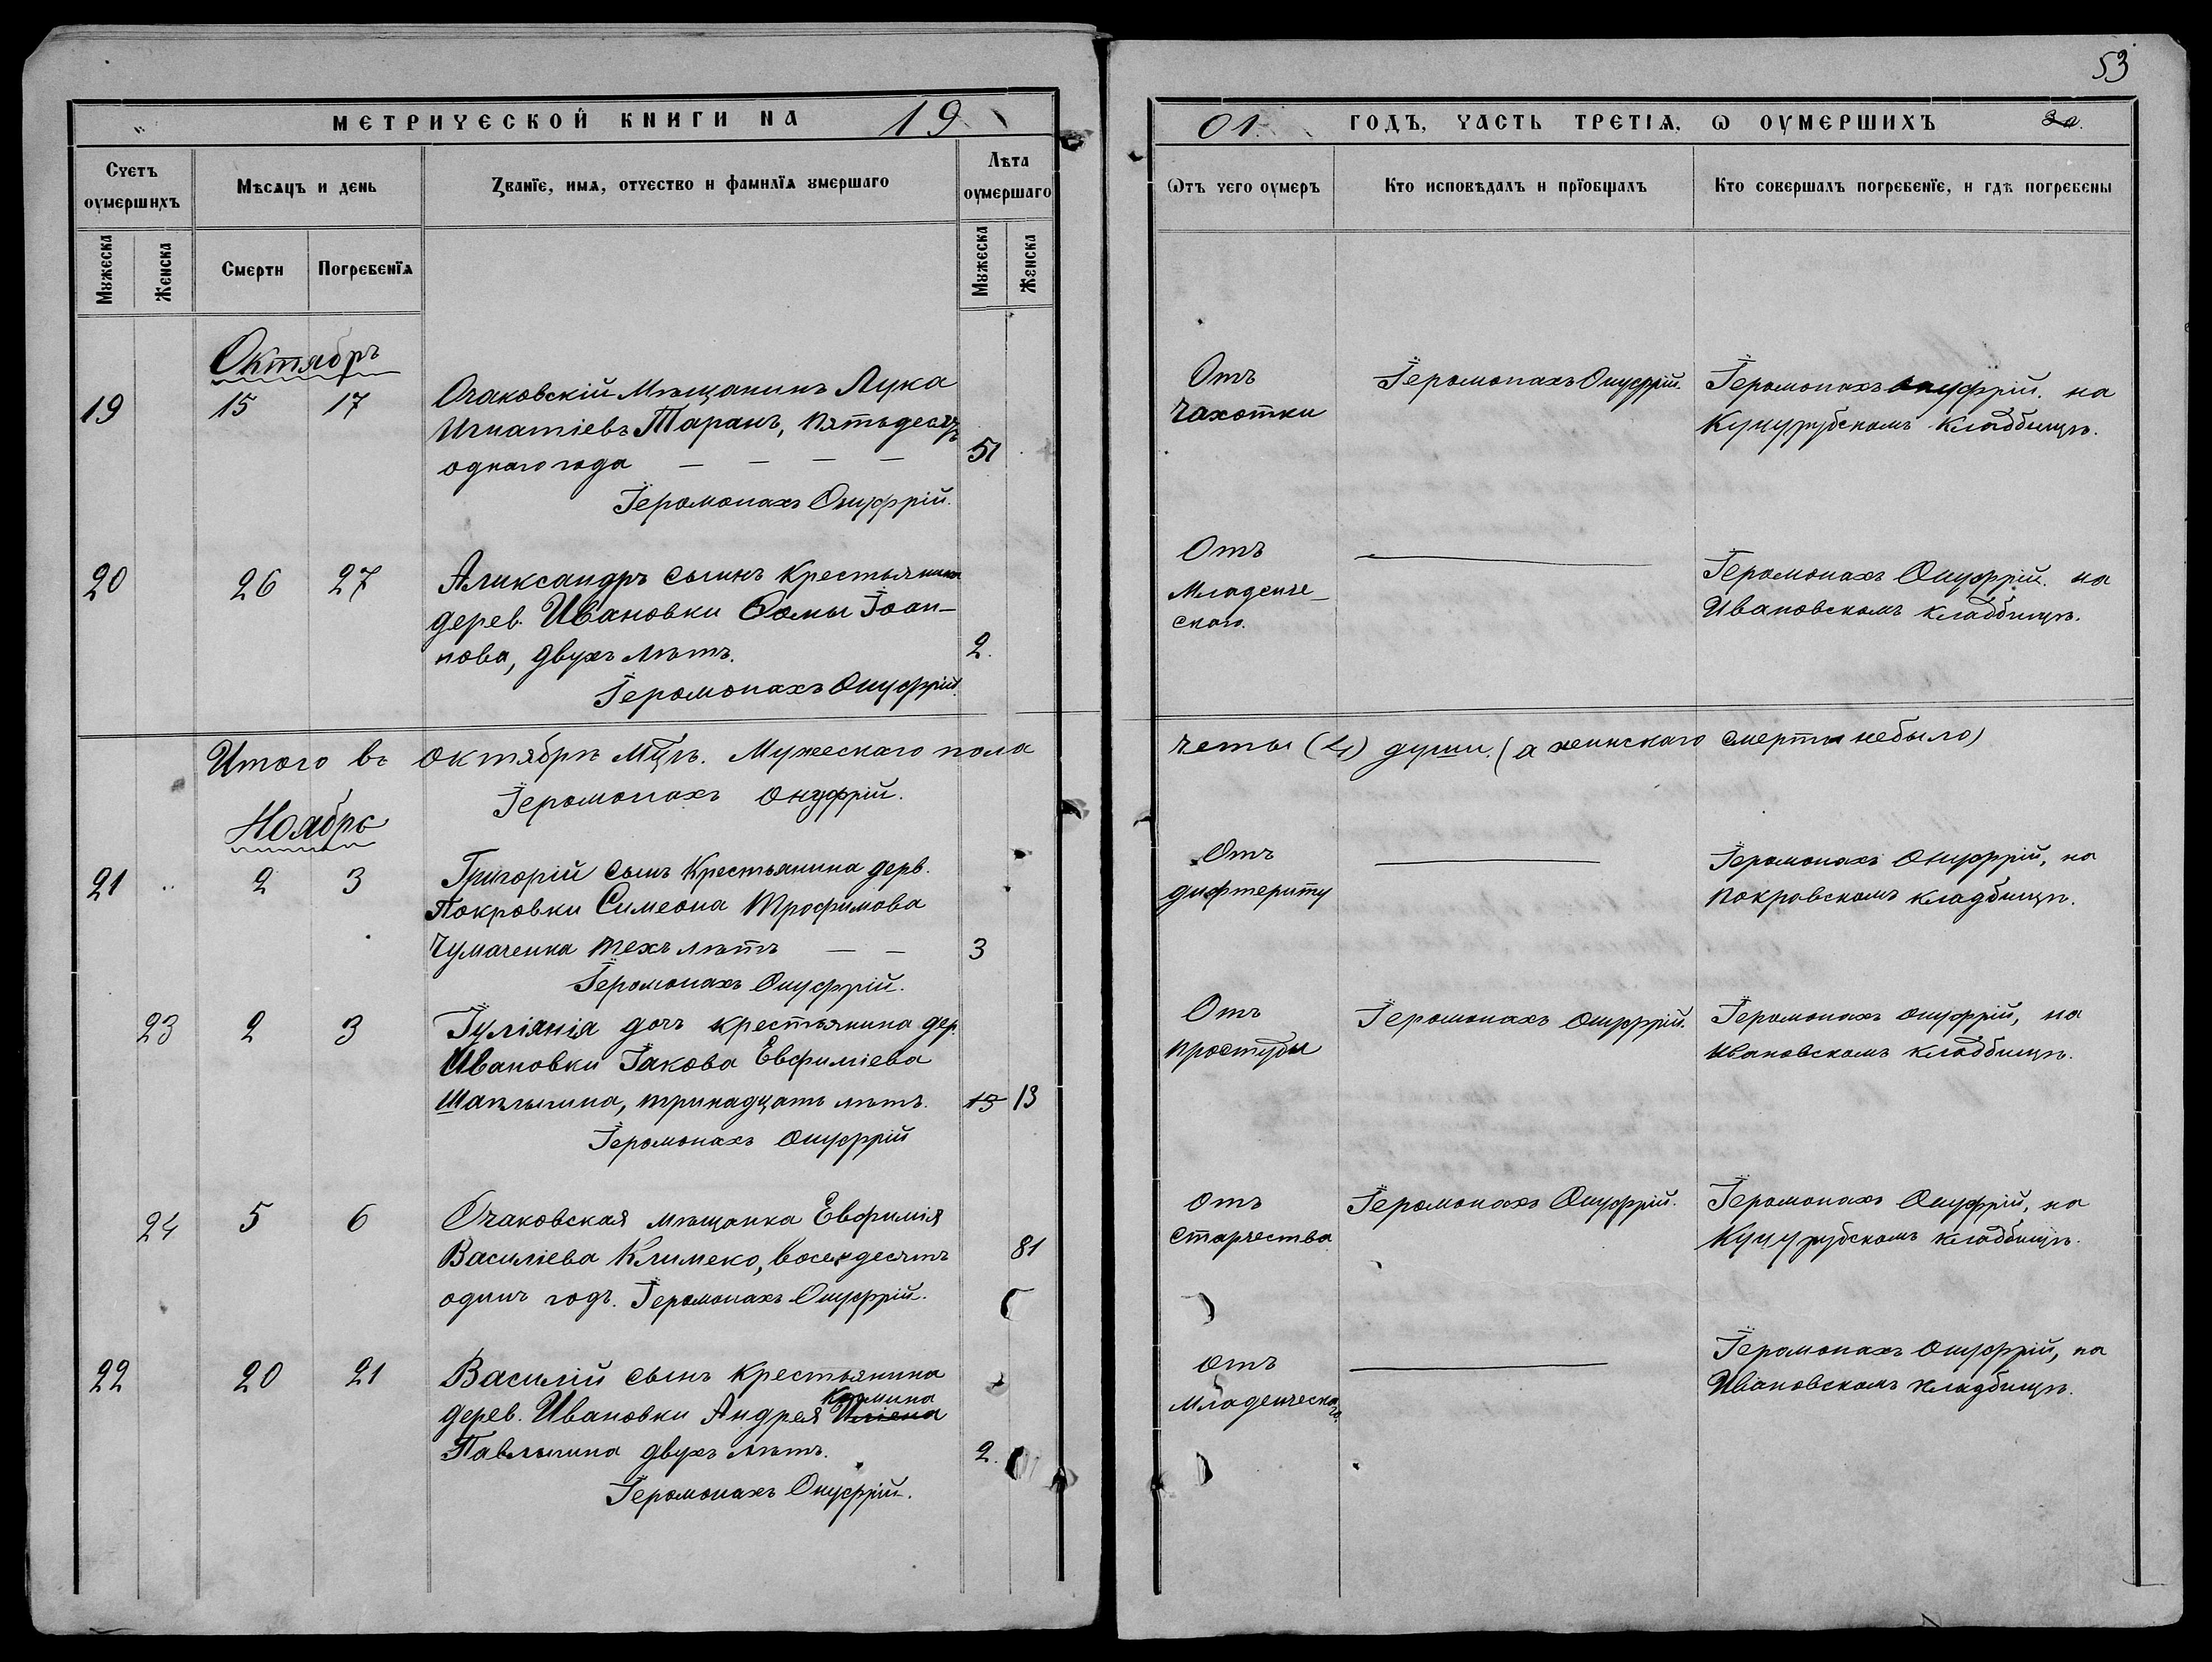 53
МЕТРИЧЕСКОЙ КНИГИ НА 19
01. ГОДЪ, ЧАСТЬ ТРЕТІѦ, Ѡ ОУМЕРШИХЪ
Счетъ оумершихъ
Мѣсѧцъ и день
Званїе, имѧ, отчество и фамилїѧ ꙋмершаго
Лѣта оумершаго
Ѿтъ чего оумеръ
Кто исповѣдалъ и прїобщалъ
Кто совершалъ погребенїе, и гдѣ погребены
Мꙋжеска
Женска
Смерти
Погребенїѧ
Мꙋжеска
Женска
Октябрь
19 15 17 Очаковскій Мѣщанинъ Лука
Игнатіевъ Таранъ, пятьдесятъ
однаго года — — — — 51
Іеромонахъ Онуфрій.
Отъ
Чахотки
Іеромонахъ Онуфрій.
Іеромонахъ Онуфрій. на
Куцурубскомъ кладбищѣ.
20 26 27 Александръ сынъ крестьянина
дерев. Ивановки Ѳомы Іоан-
нова, двухъ лѣтъ. 2.
Іеромонахъ Онуфрій.
Отъ
Младенче-
скаго.
Іеромонахъ Онуфрій. на
Ивановскомъ кладбищѣ.
Итого въ октябрѣ Мцѣ. Мужескаго пола четы (4) души. (а женскаго смерти небыло)
Іеромонахъ Онуфрій.
Ноябрь
21 2 3 Григорій сынъ Крестьянина дерв.
Покровки Симеона Трофимова
Чумаченка техъ лѣтъ — — 3
Іеромонахъ Онуфрій.
Отъ
дифтериту
Іеромонахъ Онуфрій, на
Покровскомъ кладбищѣ.
23 2 3 Іуліанія дочь крестьянина дер.
Ивановки Іакова Евфиміева
тринадцать лѣтъ. 13 13
Іеромонахъ Онуфрій
Отъ
простуды
Іеромонахъ Онуфрій.
Іеромонахъ Онуфрій, на
Ивановскомъ кладбищѣ.
24 5 6 Очаковская мѣщанка Евфимія
Василіева Климеко, восемдесятъ 81
одинъ годъ. Іеромонахъ Онуфрій.
Отъ
Старчества
Іеромонахъ Онуфрій.
Іеромонахъ Онуфрій, на
Куцурубскомъ кладбищѣ.
22 20 21 Василій сынъ крестьянина
дерев. Ивановки Андрея
двухъ лѣтъ. 2.
Іеромонахъ Онуфрій.
Отъ
Младенческаго.
Іеромонахъ Онуфрій, на
Ивановскомъ кладбищѣ.